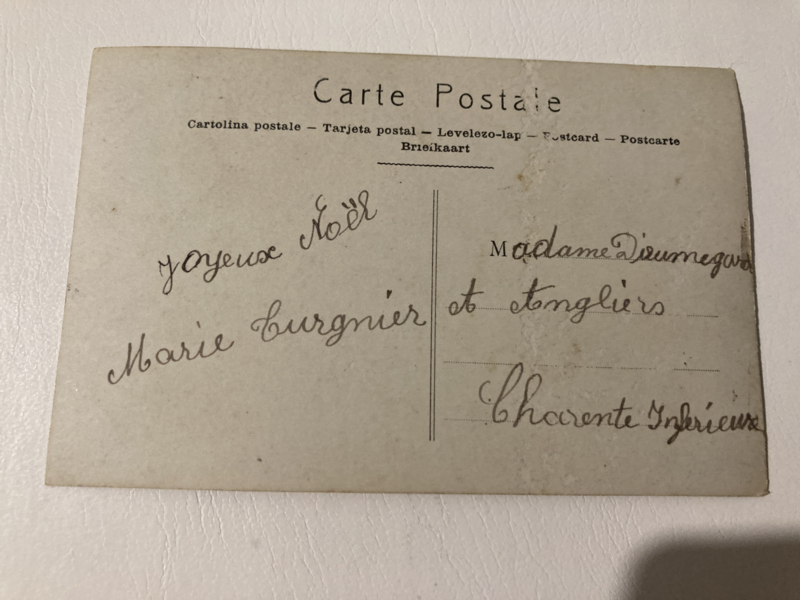 Carte Postale
Cartolina postale — Tarjeta postal — Levelezo-lap — Postcard — Postcarte
Brieikaart
Joyeux Noël
Marie Turgnier
Madame Dieumegard
A Angliers
Charente Inferieure